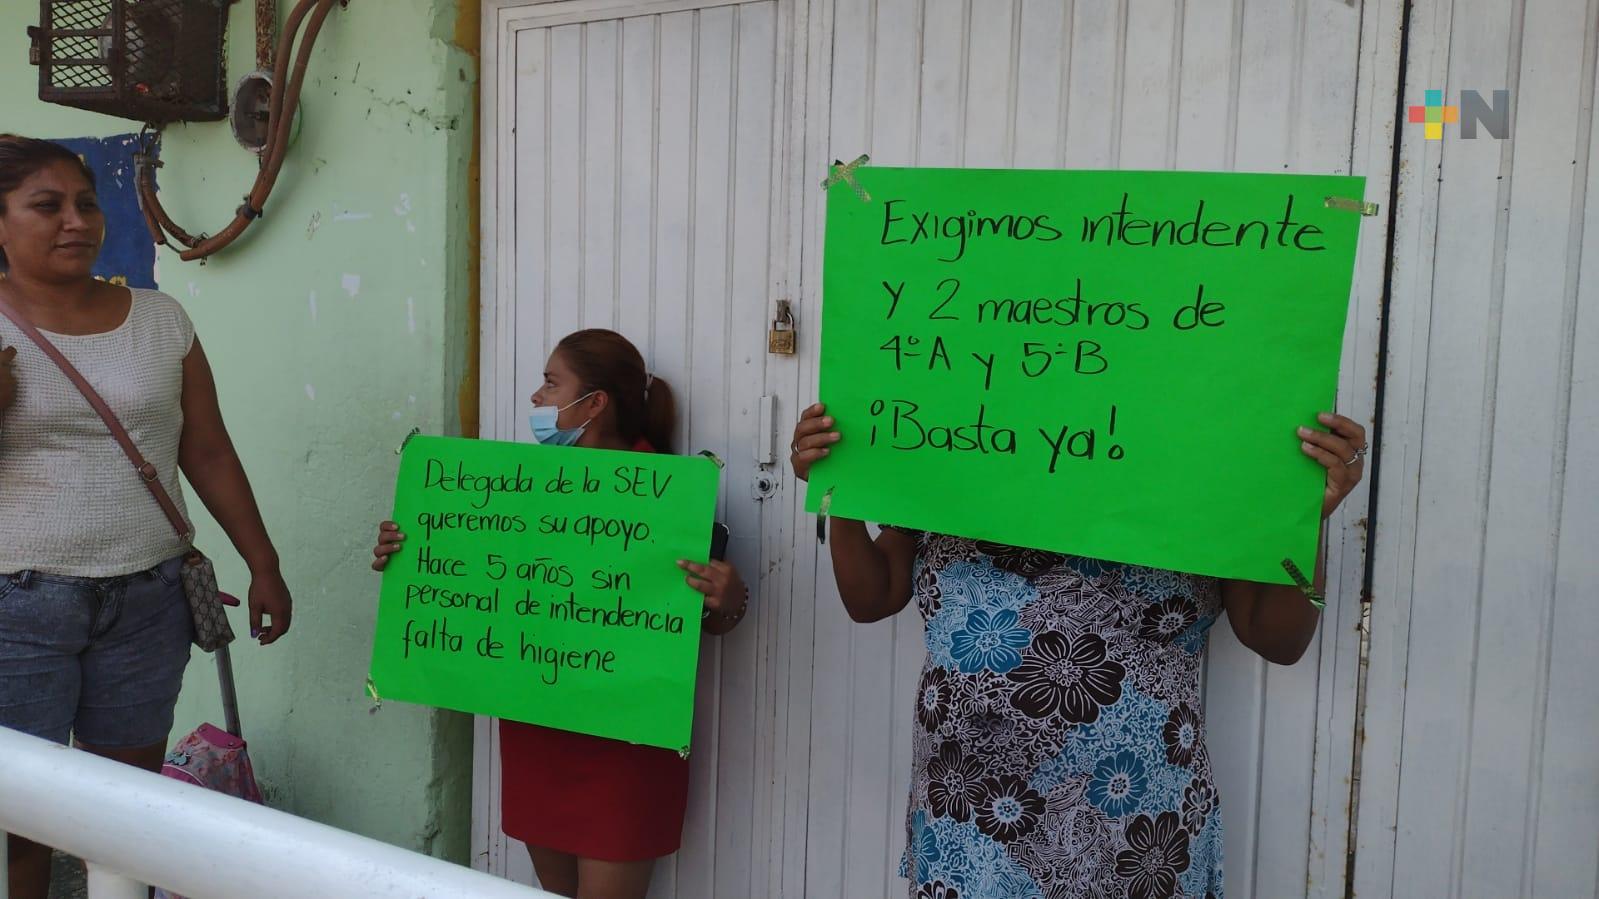 +N
Exigimos intendente
y 2 maestros de
4º A y 5º B
¡Basta ya!
Delegada de la SEV
queremos su apoyo.
Hace 5 años sin
personal de intendencia
falta de higiene